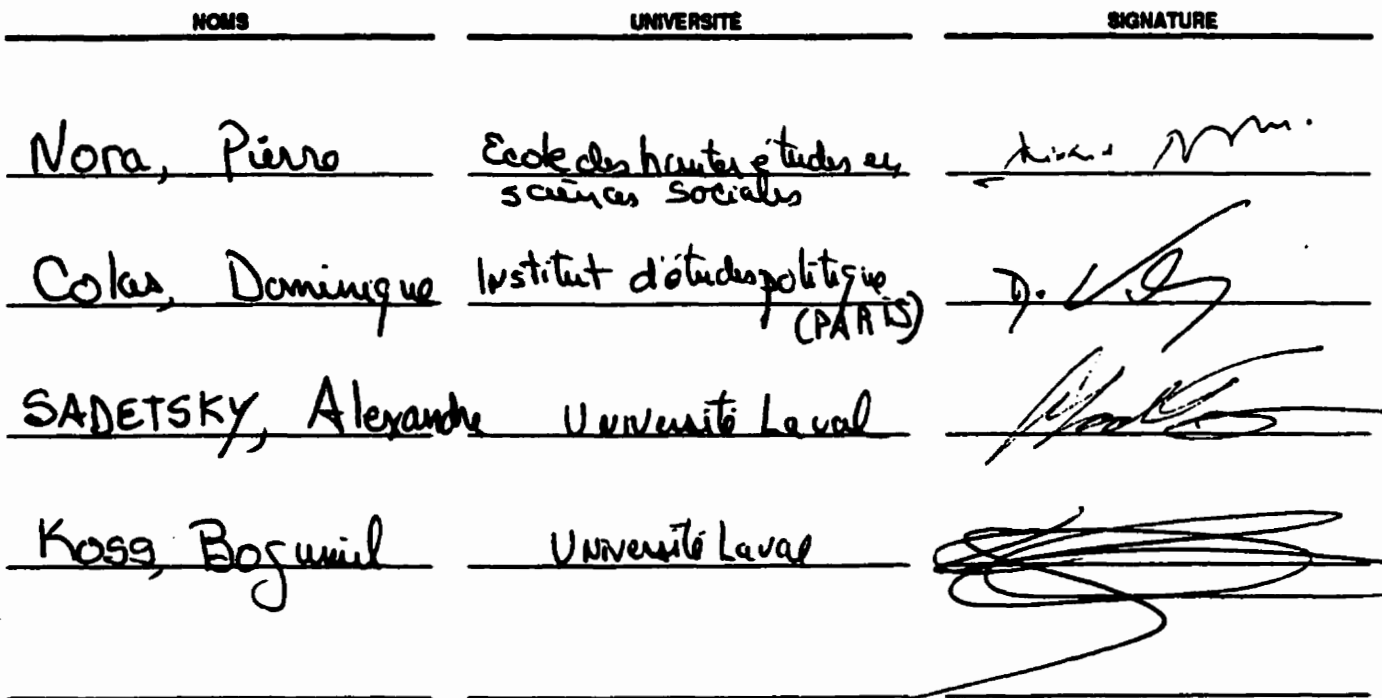 NOMS UNIVERSITÉ SIGNATURE
Nora, Pierre Ecole des hautes études en
sciences Sociales
Colas, Dominique Institut d'études politique
(PARIS)
D.
SADETSKY, Alexandre Université Laval
Koss, Bogumil Université Laval